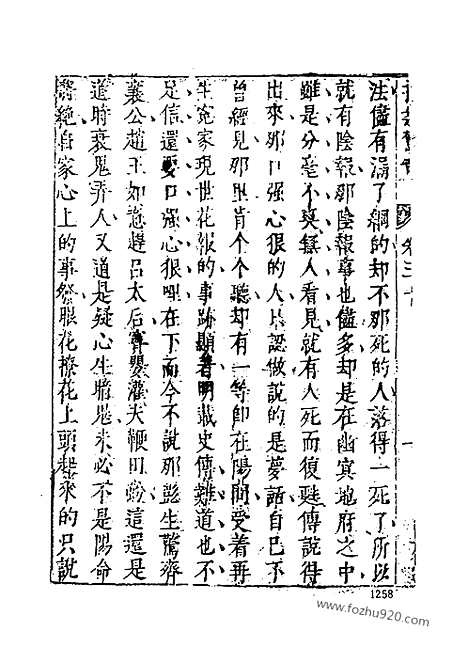 卷三十
法儘有漏了網的却不那死的人落得一死了所以
就有陰報那陰報事也儘多却是在幽冥地府之中
雖是分毫不爽無人看見就有人死而復甦傳說得
出來那口强心狠的人只認做說的是夢話自己不
曾經見那里肯个个聽却有一等即在陽間受着再
生寃家現世花報的事跡顯著明載史傳難道也不
足信還要口强心狠哩在下而今不說那彭生驚齊
襄公趙王如意趕呂太后竇嬰灌夫鞭田蚡這還是
道時衰鬼弄人又道是疑心生暗鬼未必不是陽命
將絕自家心上的事發眼花撩花上頭起來的只說
1258
www.fozhu920.com